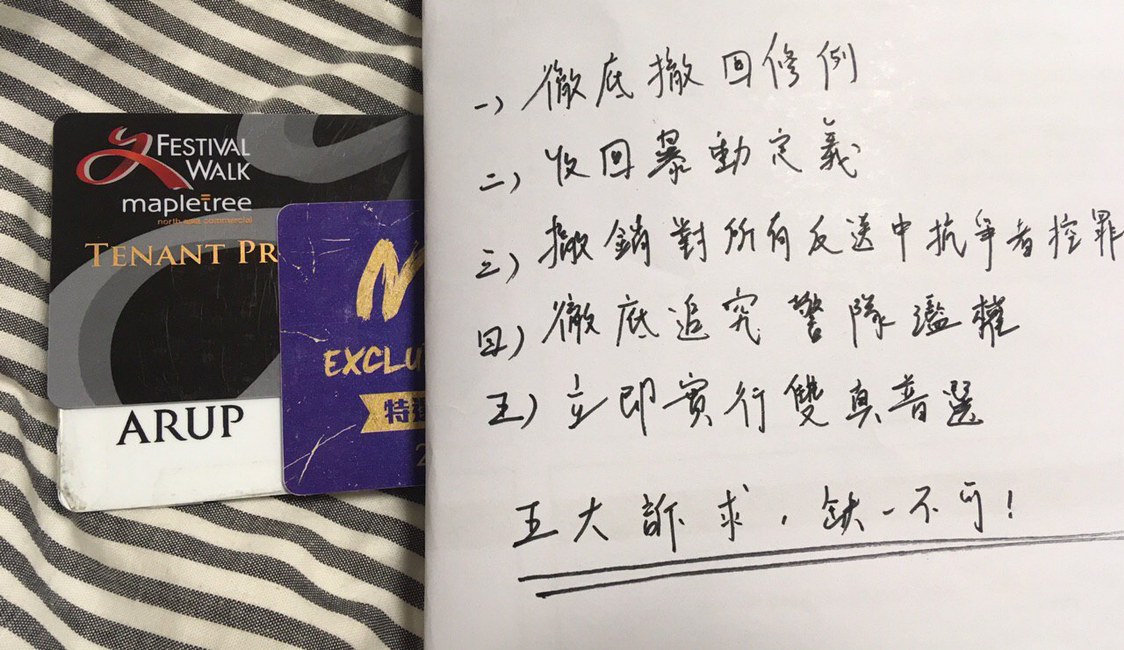 FESTIVAL
WALK
mapletree
north asia commercial
TENANT PR
ARUP
EXCLU
特
2
一) 徹底撤回修例
二) 收回暴動定義
三) 撤銷對所有反送中抗爭者控罪
四) 徹底追究警隊濫權
五) 立即實行雙真普選
五大訴求,缺一不可!